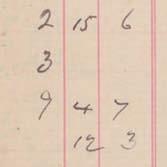 2 15 6
3
9 4 7
12 3